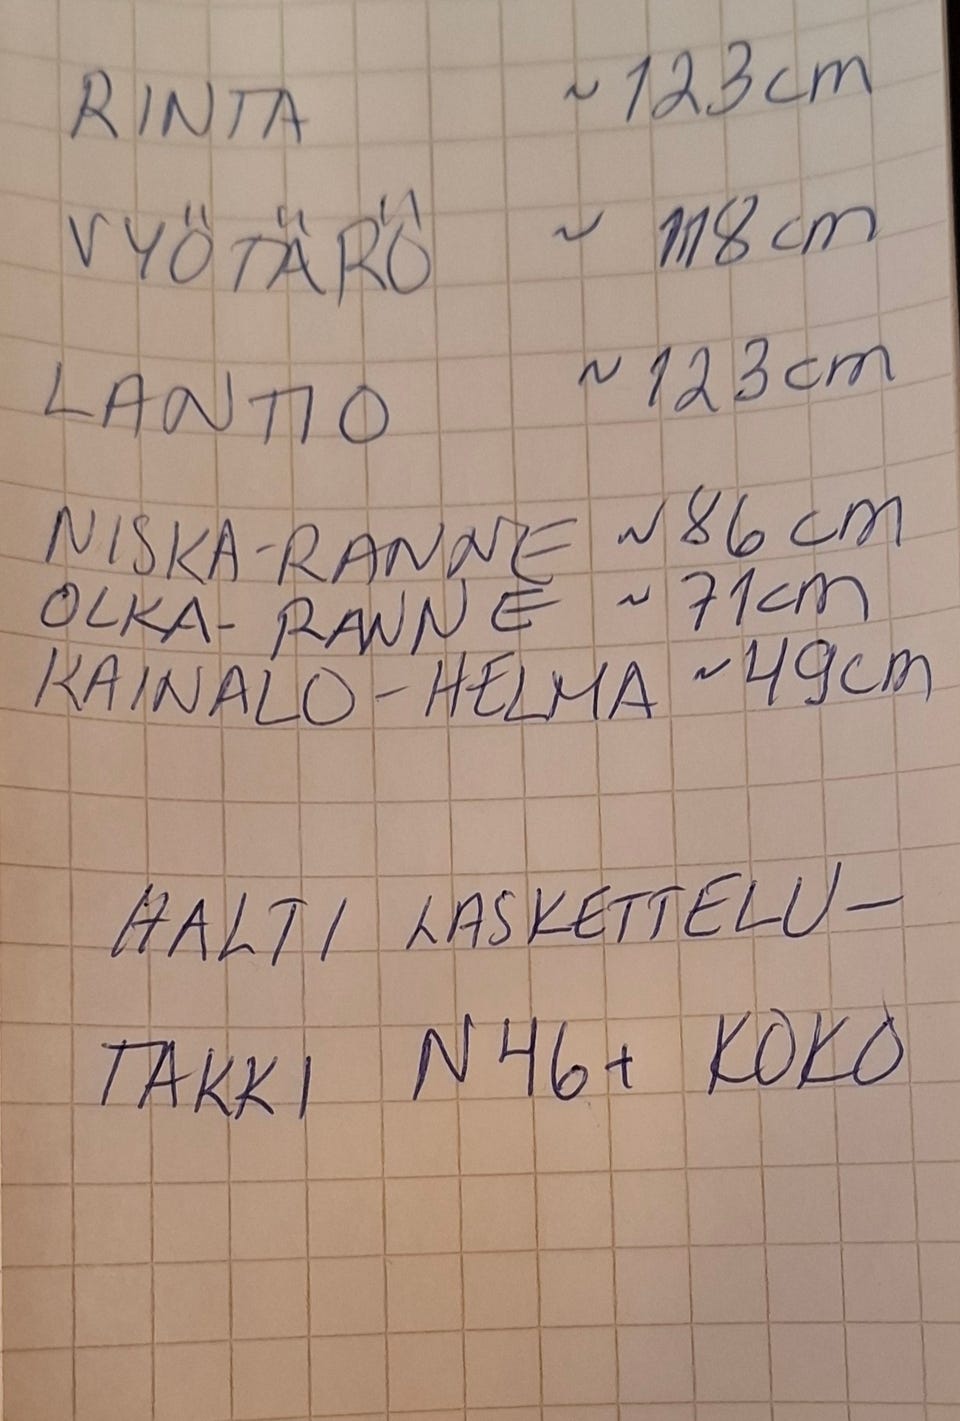 RINTA ~123cm
VYÖTÄRÖ ~ 118cm
LANTIO ~123cm
NISKA-RANNE ~86cm
OLKA-RANNE ~71cm
KAINALO-HELMA ~49cm
HALTI LASKETTELU-
TAKKI N46+ KOKO